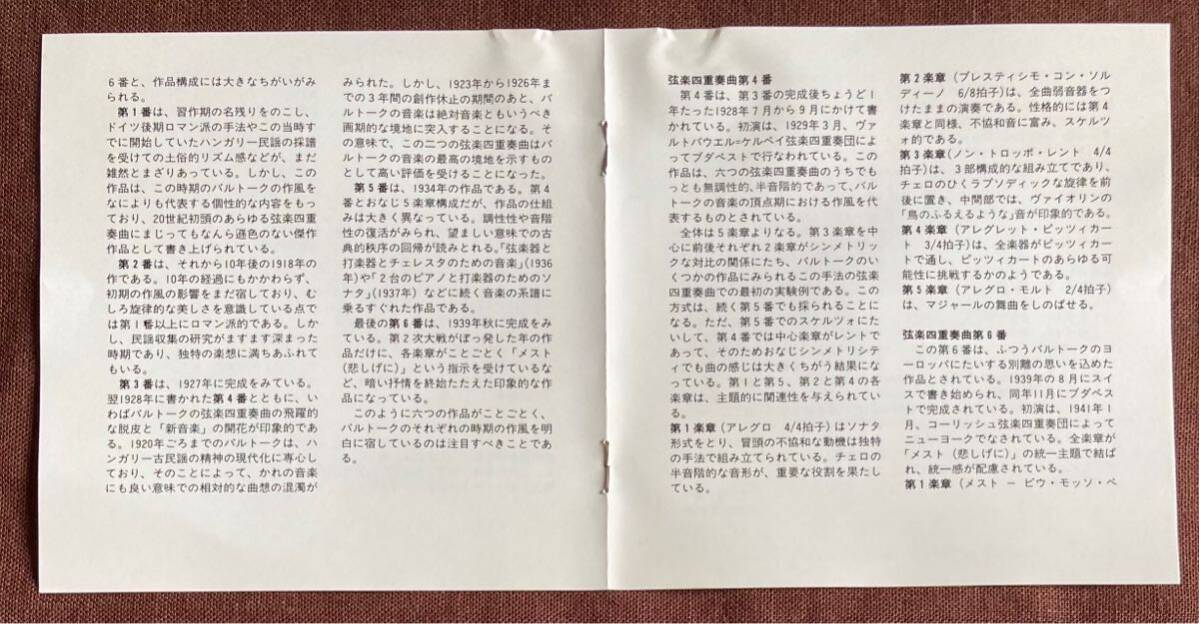 6番と、作品構成には大きなちがいがみ
られる。
第1番は、習作期の名残りをのこし、
ドイツ後期ロマン派の手法やこの当時す
でに開始していたハンガリー民謡の採譜
を受けての土俗的リズム感などが、まだ
雑然とまざりあっている。しかし、この
作品は、この時期のバルトークの作風を
なによりも代表する個性的な内容をもっ
ており、20世紀初頭のあらゆる弦楽四重
奏曲にまじってもなんら遜色のない傑作
作品として書き上げられている。
第2番は、それから10年後の1918年の
作である。10年の経過にもかかわらず、
初期の作風の影響をまだ宿しており、む
しろ旋律的な美しさを意識している点で
は第1番以上にロマン派的である。しか
し、民謡収集の研究がますます深まった
時期であり、独特の楽想に満ちあふれて
もいる。
第3番は、1927年に完成をみている。
翌1928年に書かれた第4番とともに、い
わばバルトークの弦楽四重奏曲の飛躍的
な脱皮と「新音楽」の開花が印象的であ
る。1920年ごろまでのバルトークは、ハ
ンガリー古民謡の精神の現代化に専心し
ており、そのことによって、かれの音楽
にも良い意味での相対的な曲想の混濁が
みられた。しかし、1923年から1926年ま
での3年間の創作休止の期間のあと、バ
ルトークの音楽は絶対音楽ともいうべき
画期的な境地に突入することになる。そ
の意味で、この二つの弦楽四重奏曲はバ
ルトークの音楽の最高の境地を示すもの
として高い評価を受けることになった。
第5番は、1934年の作品である。第4
番とおなじ5楽章構成だが、作品の仕組
みは大きく異なっている。調性性や音階
性の復活がみられ、望ましい意味での古
典的秩序の回帰が読みとれる。「弦楽器と
打楽器とチェレスタのための音楽」(1936
年)や「2台のピアノと打楽器のためのソ
ナタ」(1937年)などに続く音楽の系譜に
乗るすぐれた作品である。
最後の第6番は、1939年秋に完成をみ
ている。第2次大戦がぼっ発した年の作
品だけに、各楽章がことごとく「メスト
(悲しげに)」という指示を受けているな
ど、暗い抒情を終始たたえた印象的な作
品になっている。
このように六つの作品がことごとく、
バルトークのそれぞれの時期の作風を明
白に宿しているのは注目すべきことであ
る。
弦楽四重奏曲第4番
第4番は、第3番の完成後ちょうど1
年たった1928年7月から9月にかけて書
かれている。初演は、1929年3月、ヴァ
ルトバウエル=ケルペイ弦楽四重奏団によ
ってブダペストで行なわれている。この
作品は、六つの弦楽四重奏曲のうちでも
っとも無調性的、半音階的であって、バル
トークの音楽の頂点期における作風を代
表するものとされている。
全体は5楽章よりなる。第3楽章を中
心に前後それぞれ2楽章がシンメトリッ
クな対比の関係にたち、バルトークのい
くつかの作品にみられるこの手法の弦楽
四重奏曲での最初の実験例である。この
方式は、続く第5番でも採られることに
なる。ただ、第5番でのスケルツォにた
いして、第4番では中心楽章がレントで
あって、そのためおなじシンメトリシテ
ィでも曲の感じは大きくちがう結果にな
っている。第1と第5、第2と第4の各
楽章は、主題的に関連性を与えられてい
る。
第1楽章(アレグロ 4/4拍子)はソナタ
形式をとり、冒頭の不協和な動機は独特
の手法で組み立てられている。チェロの
半音階的な音形が、重要な役割を果たし
ている。
第2楽章(プレスティシモ・コン・ソル
ディーノ 6/8拍子)は、全曲弱音器をつ
けたままの演奏である。性格的には第4
楽章と同様、不協和音に富み、スケルツ
ォ的である。
第3楽章(ノン・トロッポ・レント 4/4
拍子)は、3部構成的な組み立てであり、
チェロのひくラプソディックな旋律を前
後に置き、中間部では、ヴァイオリンの
「鳥のふるえるような」音が印象的である。
第4楽章(アレグレット・ピッツィカー
ト 3/4拍子)は、全楽器がピッツィカー
トで通し、ピッツィカートのあらゆる可
能性に挑戦するかのようである。
第5楽章(アレグロ・モルト 2/4拍子)
は、マジャールの舞曲をしのばせる。
弦楽四重奏曲第6番
この第6番は、ふつうバルトークのヨ
ーロッパにたいする別離の思いを込めた
作品とされている。1939年の8月にスイ
スで書き始められ、同年11月にブダペス
トで完成されている。初演は、1941年1
月、コーリッシュ弦楽四重奏団によって
ニューヨークでなされている。全楽章が
「メスト(悲しげに)」の統一主題で結ば
れ、統一感が配慮されている。
第1楽章(メスト − ピウ・モッソ・ペ